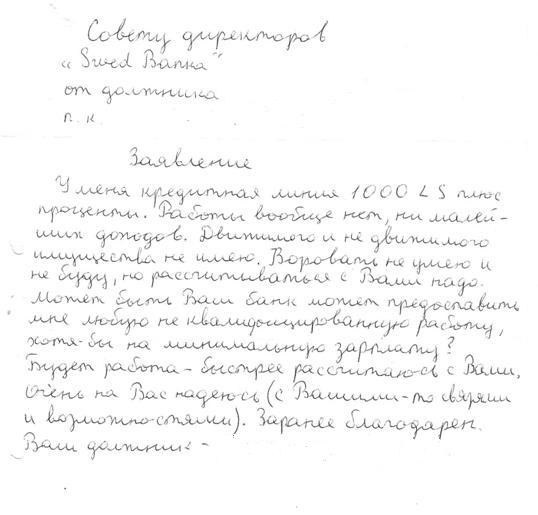 Совету директоров
„Swed Банка"
от должника
п. к.
Заявление
У меня кредитная линия 1000 LS плюс
проценты. Работы вообще нет, ни малей-
ших доходов. Движимого и не движимого
имущества не имею. Воровать не умею и
не буду, но рассчитываться с Вами надо.
Может быть Ваш банк может предоставить
мне любую не квалифицированную работу,
хотя-бы на минимальную зарплату?
Будет работа – быстрее рассчитаюсь с Вами.
Очень на Вас надеюсь (с Вашими-то связями
и возможностями). Заранее благодарен.
Ваш должник –